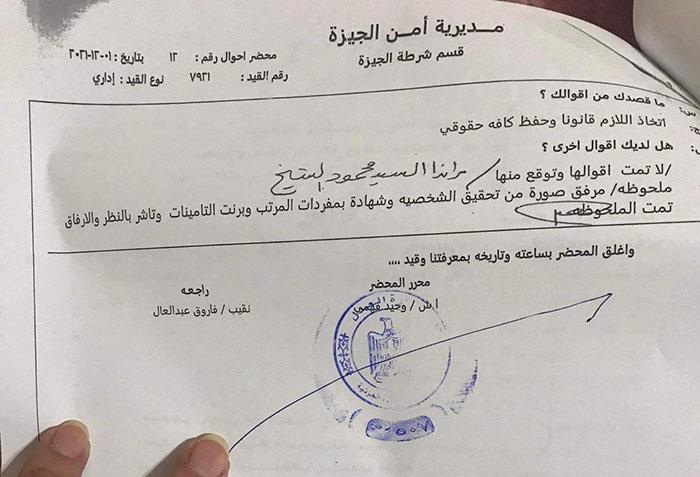 مديرية أمن الجيزة
قسم شرطة الجيزة
محضر احوال رقم : ١٢ بتاريخ : ٠١-١٢-٢٠٢١
رقم القيد : ٧٩٢١ نوع القيد : إداري
س: ما قصدك من اقوالك ؟
ج: اتخاذ اللازم قانونا وحفظ كافه حقوقي
س: هل لديك اقوال اخرى ؟
/لا تمت اقوالها وتوقع منها / راندا السيد محمود الشيخ
ملحوظه/ مرفق صورة من تحقيق الشخصيه وشهادة بمفردات المرتب وبرنت التامينات وتاشر بالنظر والارفاق
تمت الملحوظه
واغلق المحضر بساعته وتاريخه بمعرفتنا وقيد ....
محرر المحضر
راجعه
أ.ش / وحيد
نقيب / فاروق عبدالعال